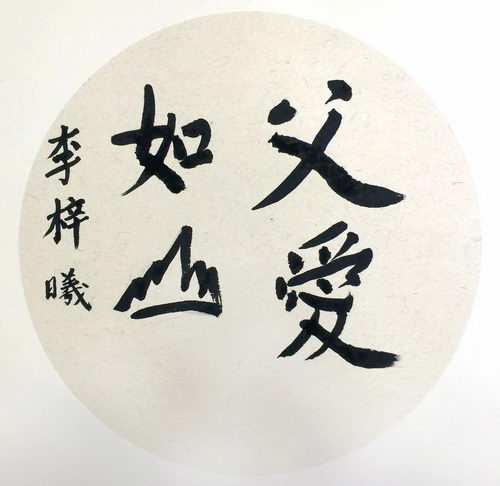 父愛
如山
李梓曦